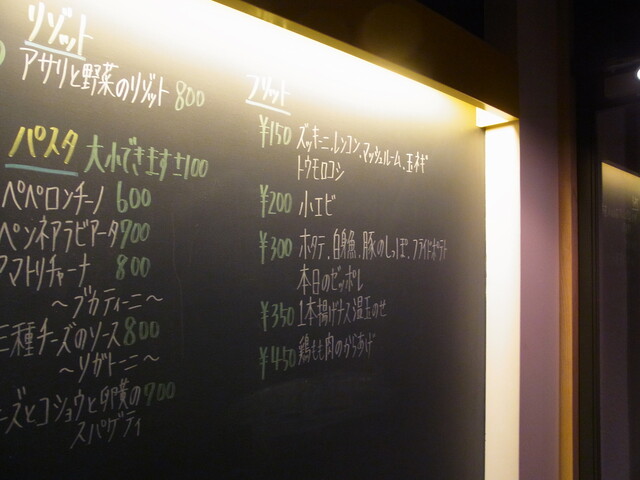 リゾット
アサリと野菜のリゾット 800
パスタ 大小できます±100
ペペロンチーノ 600
ペンネアラビアータ 900
アマトリチャーナ 800
～ブカティーニ～
三種チーズのソース 800
～リガトーニ～
ーズとコショウと卵黄の 900
スパゲティ
フリット
¥150 ズッキーニ、レンコン、マッシュルーム、玉ネギ
トウモロコシ
¥200 小エビ
¥300 ホタテ、白身魚、豚のしっぽ、フライドポテト
本日のゼッポレ
¥350 1本揚げナス温玉のせ
¥450 鶏もも肉のからあげ